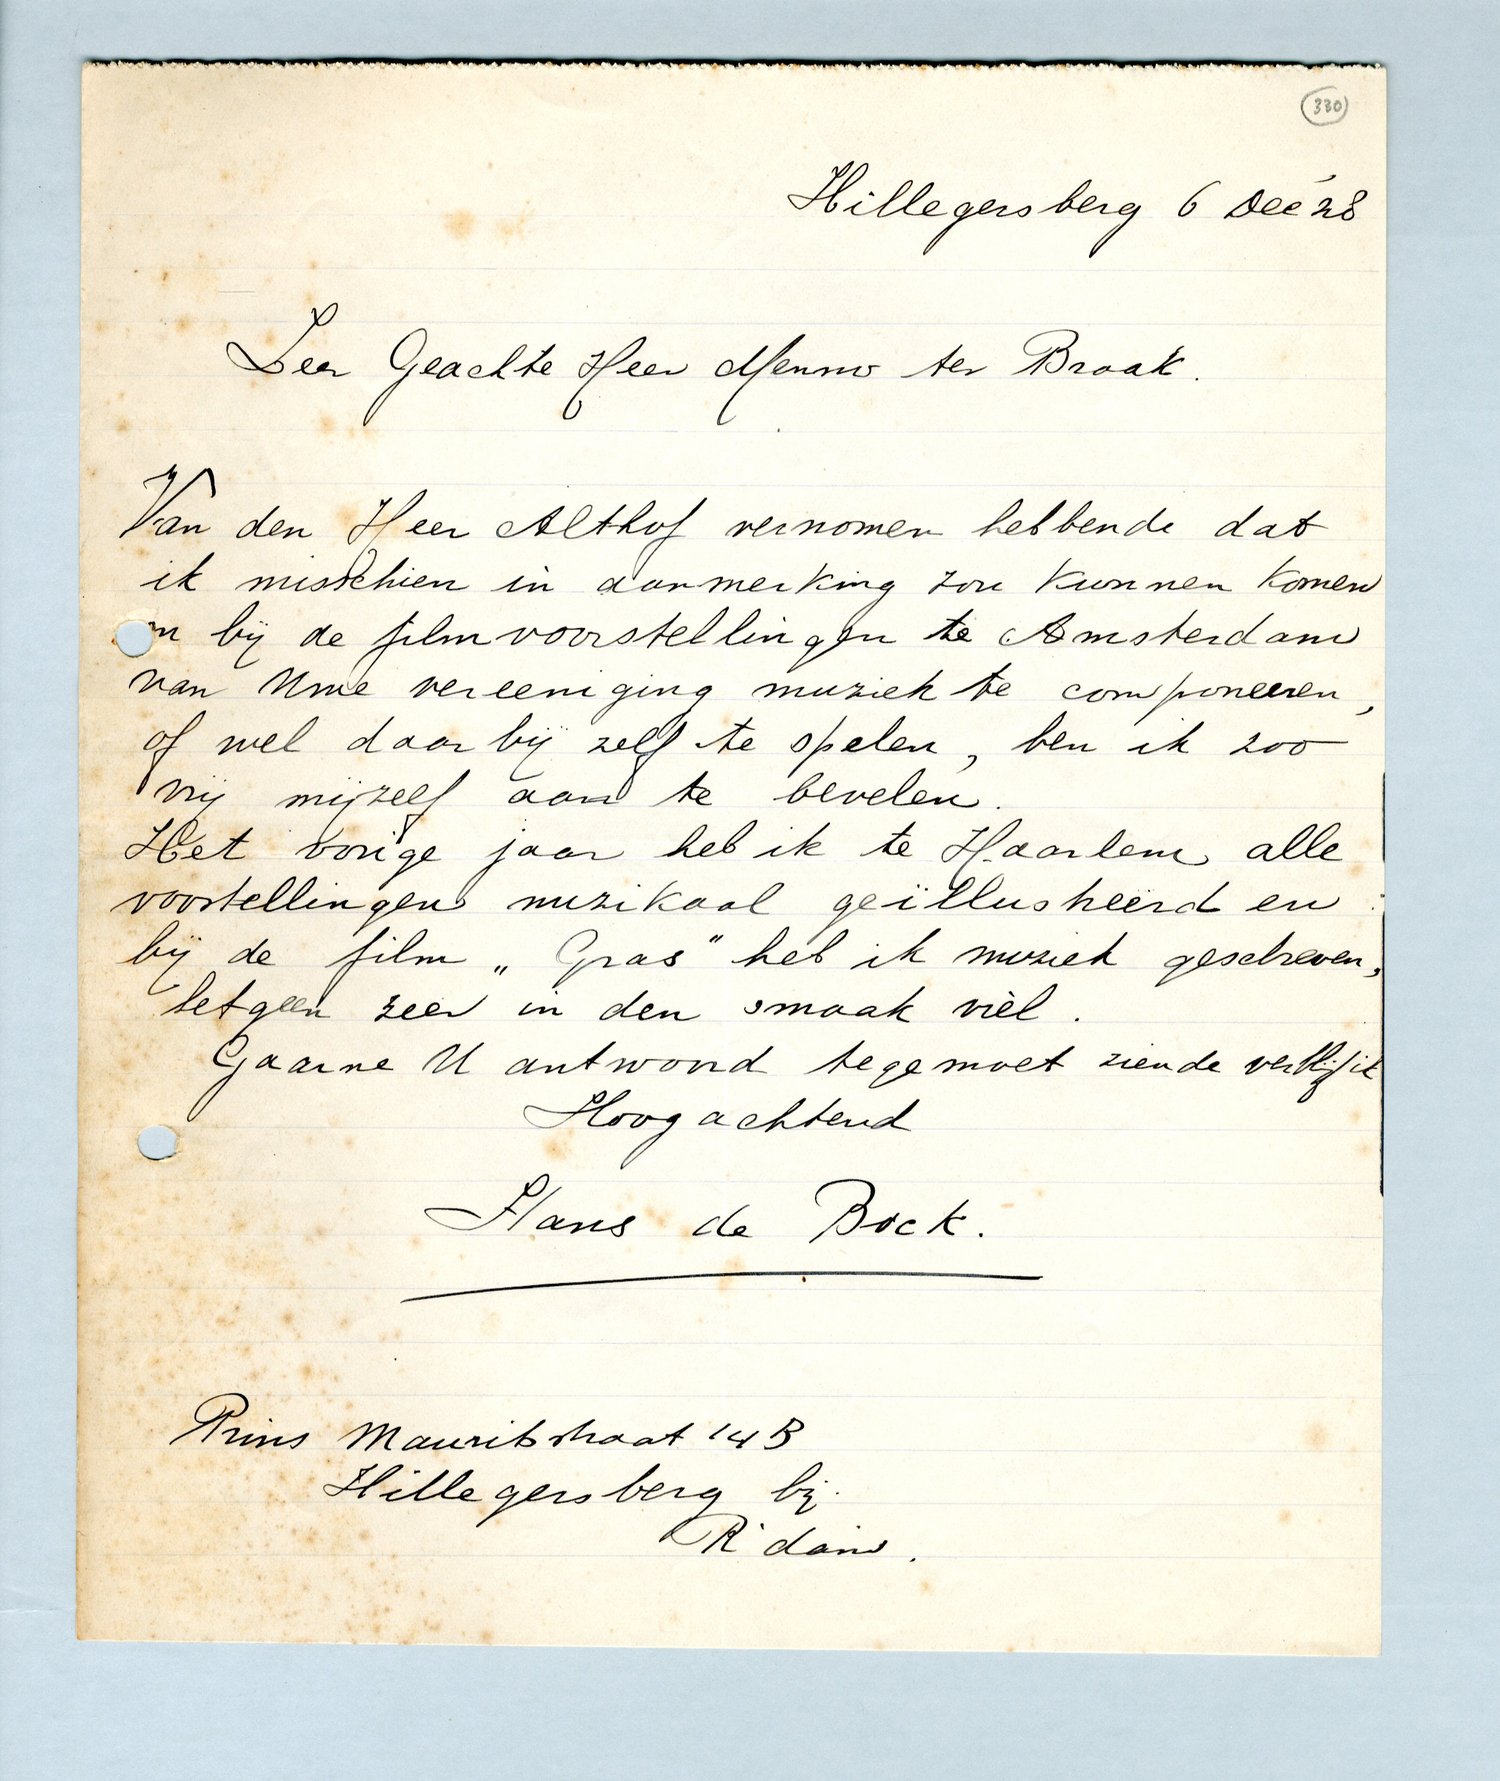 330
Hillegersberg 6 Dec '28
Zeer Geachte Heer Menno ter Braak.
Van den Heer Althof vernomen hebbende dat
ik misschien in aanmerking zou kunnen komen
om bij de filmvoorstellingen te Amsterdam
van Uwe vereeniging muziek te componeeren,
of wel daarbij zelf te spelen, ben ik zoo
vrij mijzelf aan te bevelen.
Het vorige jaar heb ik te Haarlem alle
voorstellingen muzikaal geïllustreerd en
bij de film „Gras" heb ik muziek geschreven,
hetgeen zeer in den smaak viel.
Gaarne U antwoord tegemoet ziende verblijf ik
Hoogachtend
Hans de Bock.
Prins Mauritsstraat 14 B
Hillegersberg bij
R'dam.